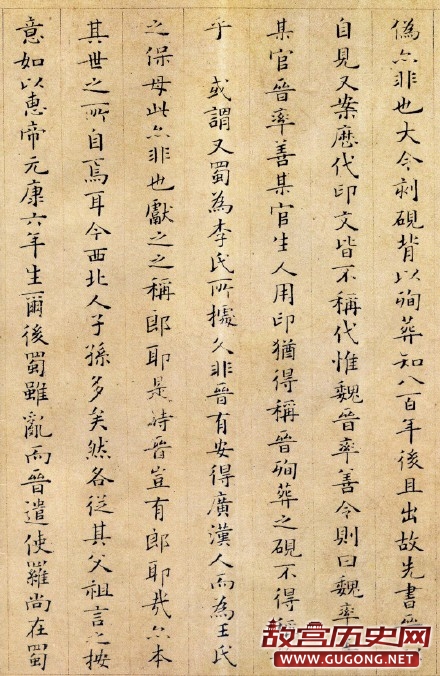 偽亦非也大令刻硯背以殉葬知八百年後且出故先書晉
自見又案歷代印文皆不稱代惟魏晉率善令則曰魏率善
某官晉率善某官生人用印猶得稱晉殉葬之硯不得稱
乎 或謂又蜀為李氏所據久非晉有安得廣漢人而為王氏
之保母此亦非也獻之之稱郎耶是時晉豈有郎耶哉亦本
其世之所自焉耳今西北人子孫多矣然各從其父祖言之按
意如以惠帝元康六年生爾後蜀雖亂而晉遣使羅尚在蜀
故宫历史网
WWW.GUGONG.NET